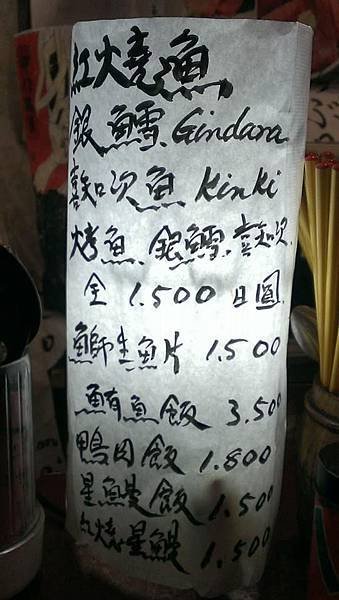 紅燒魚
銀鱈、Gindara
喜知次魚 Kinki
烤魚、銀鱈、喜知次、
全 1.500 日圓
鰤生魚片 1.500
鮪魚飯 3.500
鴨肉飯 1.800
星鰻飯 1.500
紅燒星鰻 1.500